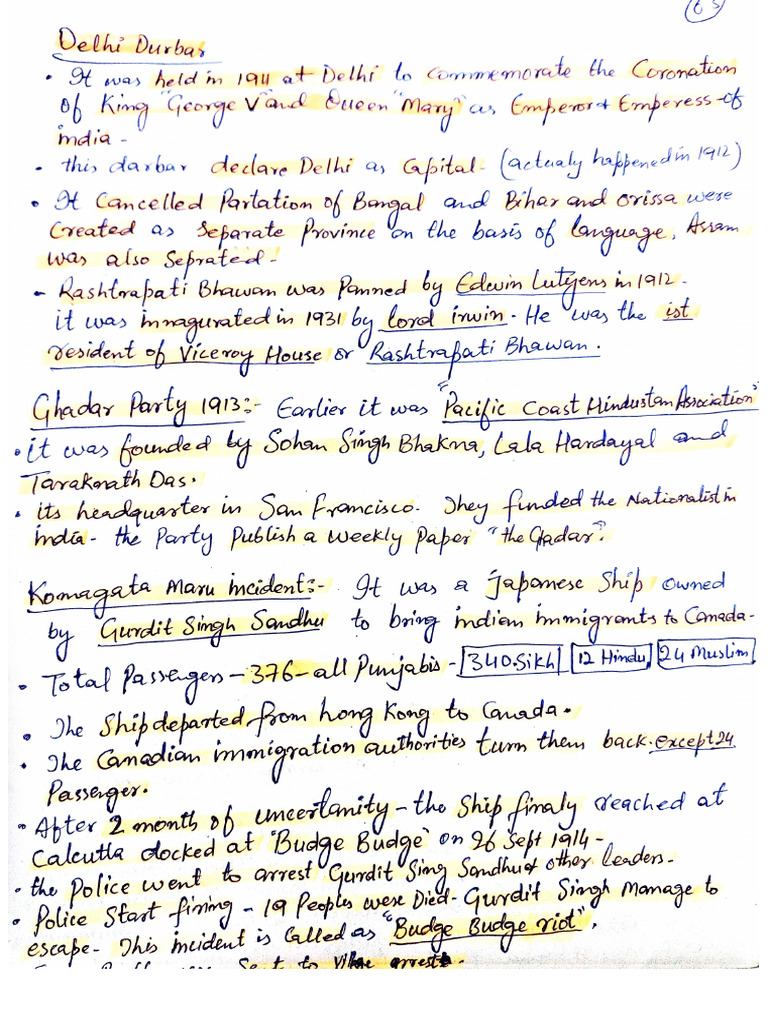 63
Delhi Durbar
• It was held in 1911 at Delhi to commemorate the Coronation
of King "George V" and Queen "Mary" as Emperor & Emperess of
india -
- this darbar declare Delhi as Capital - (actualy happened in 1912)
• It Cancelled Partation of Bangal and Bihar and orissa were
Created as Separate Province on the basis of language, Assam
was also Seprated -
- Rashtrapati Bhawan was Panned by Edwin Lutyens in 1912 -
it was innagurated in 1931 by lord irwin. He was the ist
resident of Viceroy House or Rashtrapati Bhawan.
Ghadar Party 1913:- Earlier it was "Pacific Coast Hindustan Association"
• it was founded by Sohan Singh Bhakna, Lala Hardayal and
Taraknath Das.
• its headquarter in San Francisco. They funded the Nationalist in
india - the Party Publish a weekly Paper "the Gadar".
Komagata Maru incident:- It was a Japanese Ship owned
by Gurdit Singh Sandhu to bring indian immigrants to Canada -
• Total Passengers - 376 - all Punjabis - 340.Sikh 12 Hindu 24 Muslim
• The Ship departed from hong Kong to Canada.
• The Canadian immigration authorities turn them back. except 24
Passenger.
• After 2 month of uncertanity - the Ship finaly reached at
Calcutta docked at "Budge Budge" on 26 Sept 1914 -
• the Police went to arrest Gurdit Sing Sandhu & other leaders -
• Police Start firing - 19 Peoples were Died - Gurdit Singh Manage to
escape - This incident is Called as "Budge Budge riot",
Sent to arrest